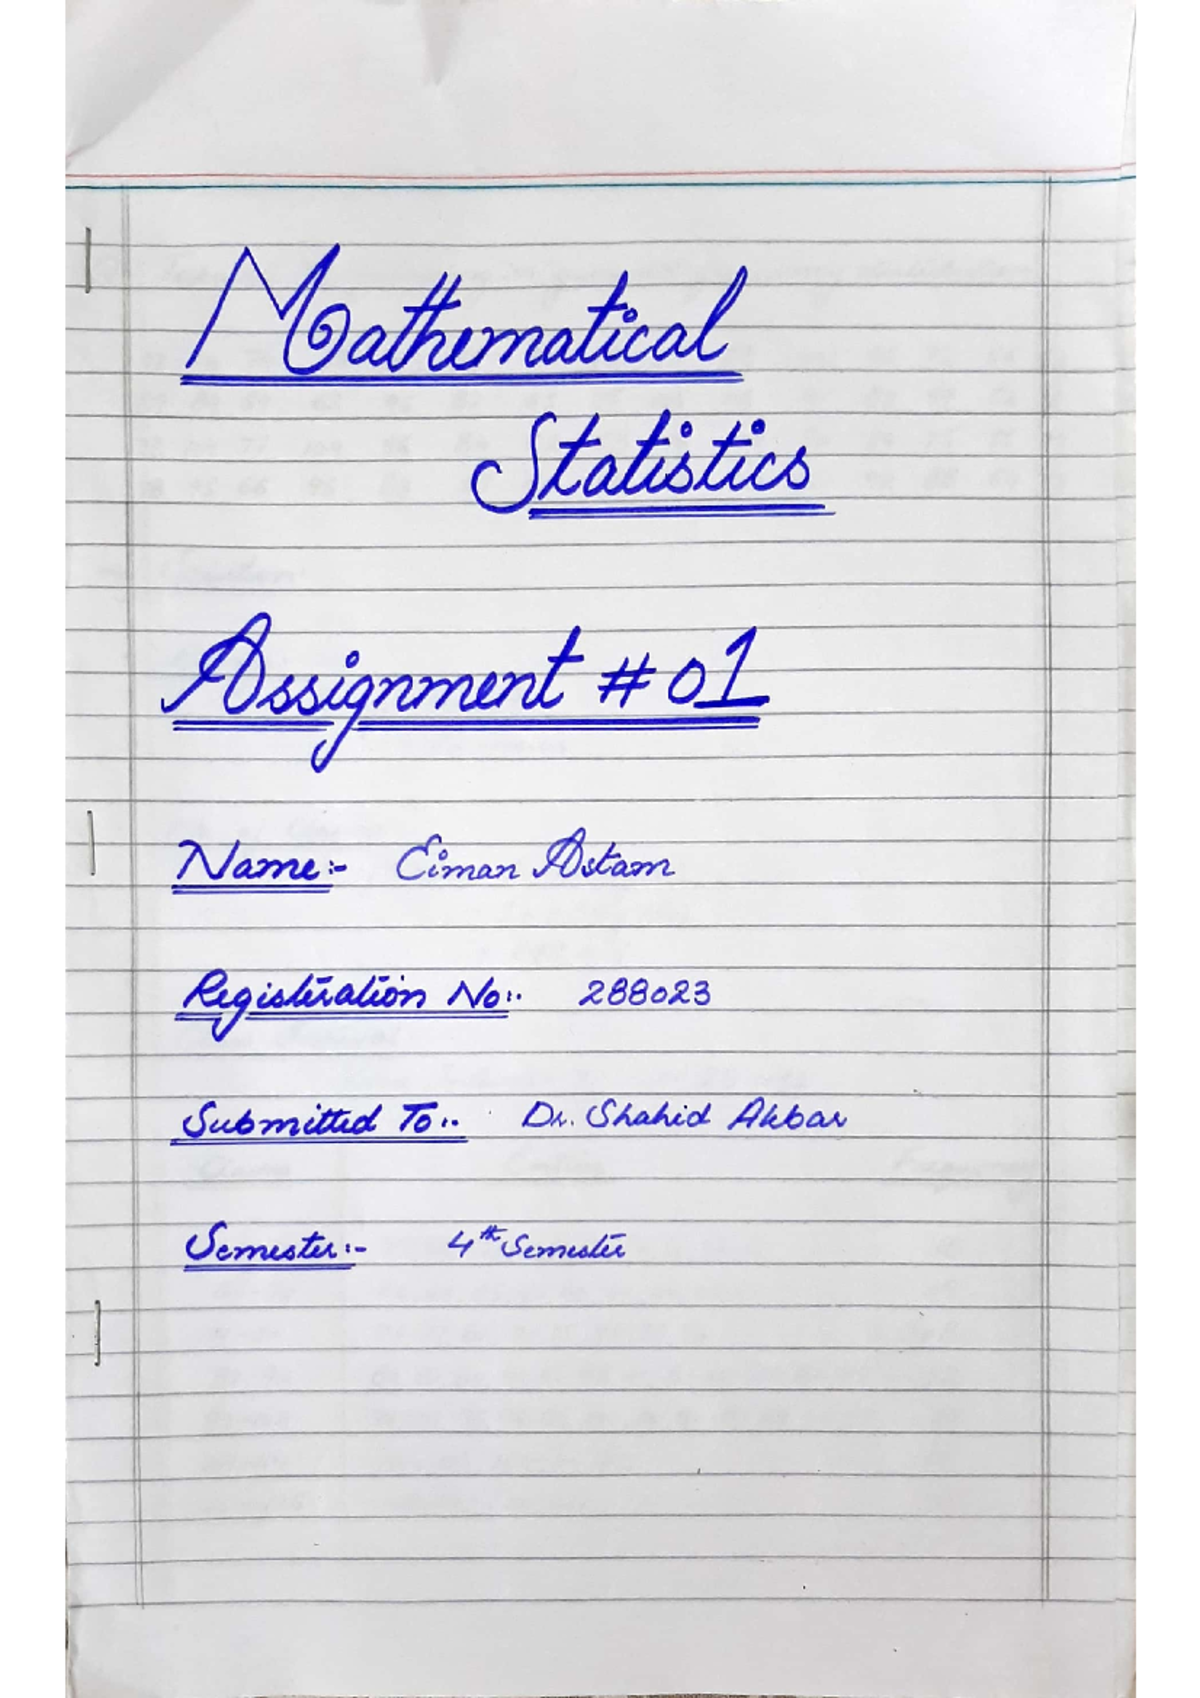 Mathematical
Statistics
Assignment # 01
Name:- Eiman Astam
Registeration No:. 288023
Submitted To:. Dr. Shahid Akbar
Semester:- 4th Semester